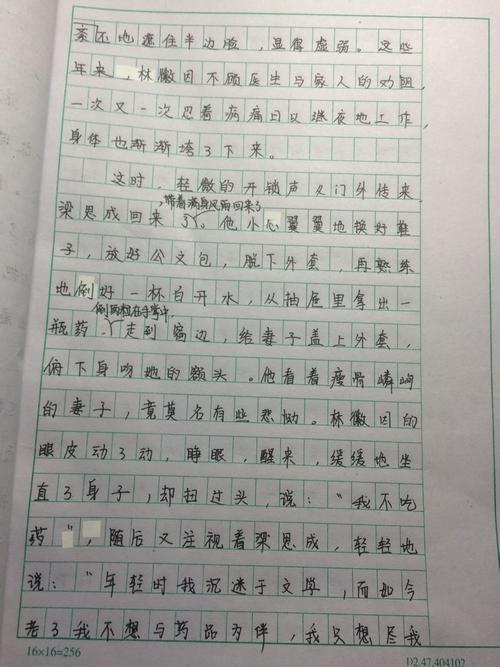 柔地遮住半边脸，显得虚弱。这些
年来，林徽因不顾医生与家人的劝阻，
一次又一次忍着病痛日以继夜地工作，
身体也渐渐垮了下来。
这时，轻微的开锁声从门外传来，
带着满身风雨回来了
梁思成回来了。他小心翼翼地换好鞋
子，放好公文包，脱下外套，再熟练
地倒好一杯白开水，从抽屉里拿出一
倒两粒在手掌中，
瓶药，走到窗边，给妻子盖上外套，
俯下身吻她的额头。他看着瘦骨嶙峋
的妻子，竟莫名有些悲恸。林徽因的
眼皮动了动，睁眼，醒来，缓缓地坐
直了身子，却扭过头，说：“我不吃
药”，随后又注视着梁思成，轻轻地
说：“年轻时我沉迷于文学，而如今
老了我不想与药品为伴，我只想尽我
16×16=256
D2.47.404102